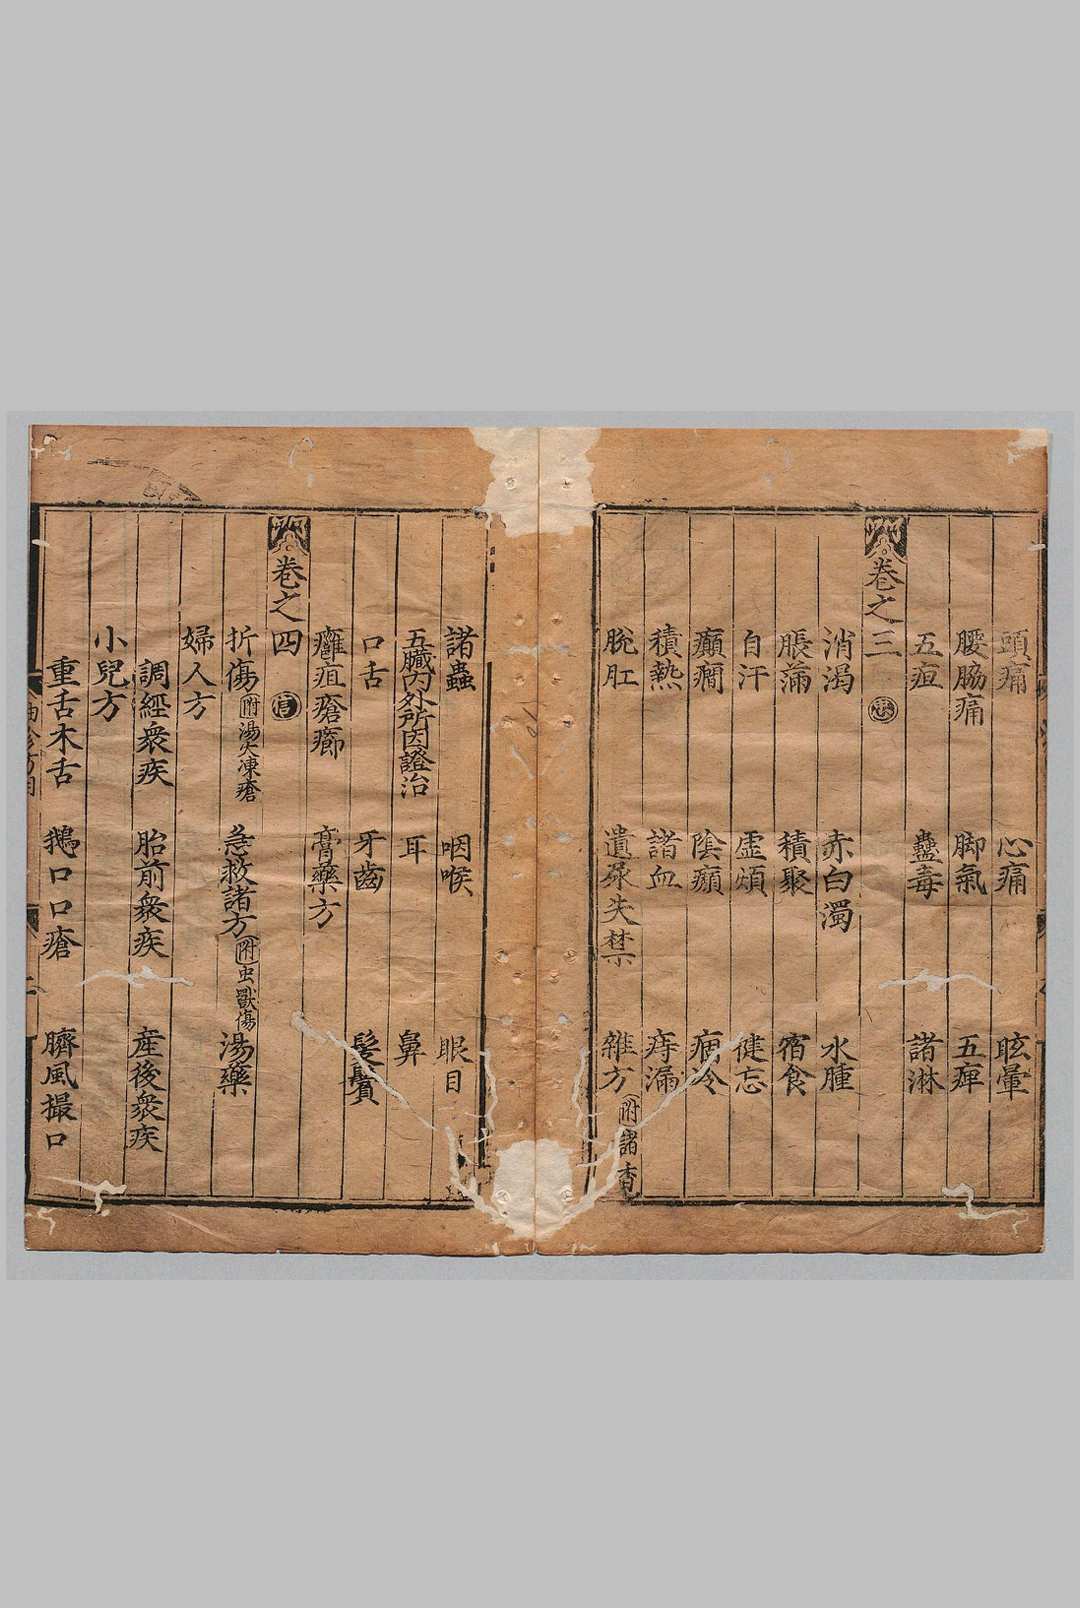 頭痛 心痛 眩暈
腰脇痛 脚氣 五痺
五疸 蠱毒 諸淋
卷之三 忠
消渴 赤白濁 水腫
脹滿 積聚 宿食
自汗 虛煩 健忘
癲癇 陰㿗 痼冷
積熱 諸血 痔漏
脫肛 遺尿失禁 雜方 附諸香
諸蟲 咽喉 眼目
五臟內外所因證治 耳 鼻
口舌 牙齒 髮鬢
癰疽瘡癤 膏藥方
卷之四 信
折傷 附湯火凍瘡 急救諸方 附虫獸傷 湯藥
婦人方
調經衆疾 胎前衆疾 產後衆疾
小兒方
重舌木舌 鵝口口瘡 臍風撮口